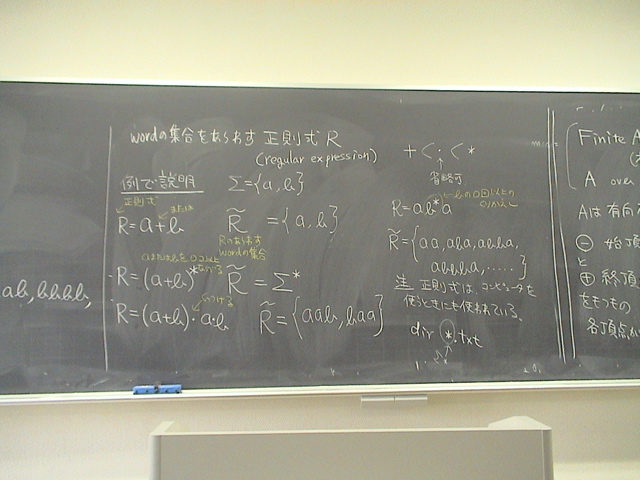 ab, bbbb,
wordの集合をあらわす 正則式 R
(regular expression)
例で説明
Σ={a, b}
正則式
または
R=a+b
R̃ ={a, b}
Rのあらわす
wordの集合
R=(a+b)*
R̃=Σ*
つなげる
R=(a+b)・a・b
R̃={aab, baa}
+<・<*
省略可
bの0回以上の
R=ab*a
R̃={aa, aba, abba,
abbba, .....}
注 正則式は、コンピュータを
使うときにも使われている。
dir *.txt
Finite A
A over
Aは有向
⊖ 始頂
と
⊕ 終頂
をもつもの
各頂点か